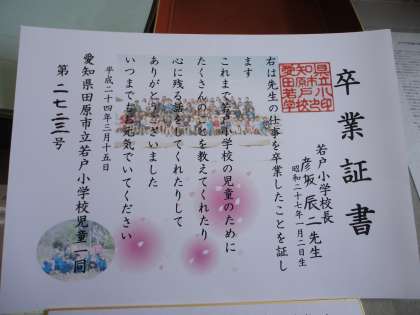 卒業証書
若戸小学校長
彦坂辰二先生
昭和二十七年一月二日生
右は先生の仕事を卒業したことを証し
ます
これまで若戸小学校の児童のために
たくさんのことを教えてくれたり
心に残る話をしてくれたりして
ありがとうございました
いつまでもお元気でいてください
平成二十四年三月十五日
愛知県田原市立若戸小学校児童一同
第二七二三号